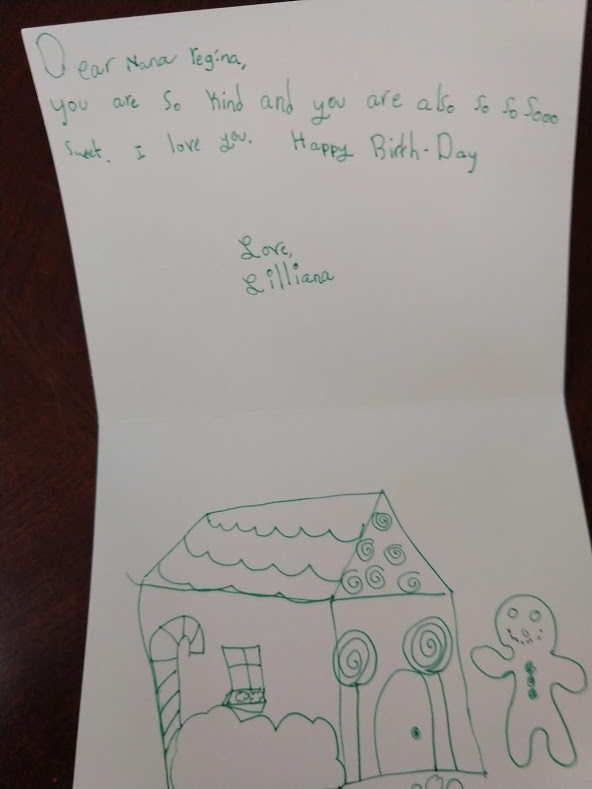 Dear Nana Regina,
you are so kind and you are also so so sooo
sweet. I love you. Happy Birth-Day
Love,
Lilliana